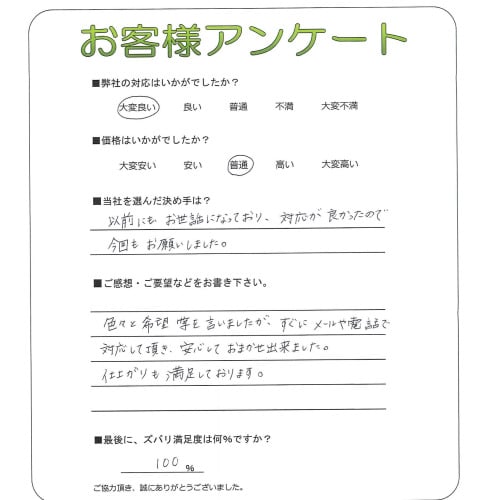 お客様アンケート
■弊社の対応はいかがでしたか？
大変良い 良い 普通 不満 大変不満
■価格はいかがでしたか？
大変安い 安い 普通 高い 大変高い
■当社を選んだ決め手は？
以前にもお世話になっており、対応が良かったので
今回もお願いしました。
■ご感想・ご要望などをお書き下さい。
色々と希望等を言いましたが、すぐにメールや電話で
対応して頂き、安心しておまかせ出来ました。
仕上がりも満足しております。
■最後に、ズバリ満足度は何％ですか？
100％
ご協力頂き、誠にありがとうございました。